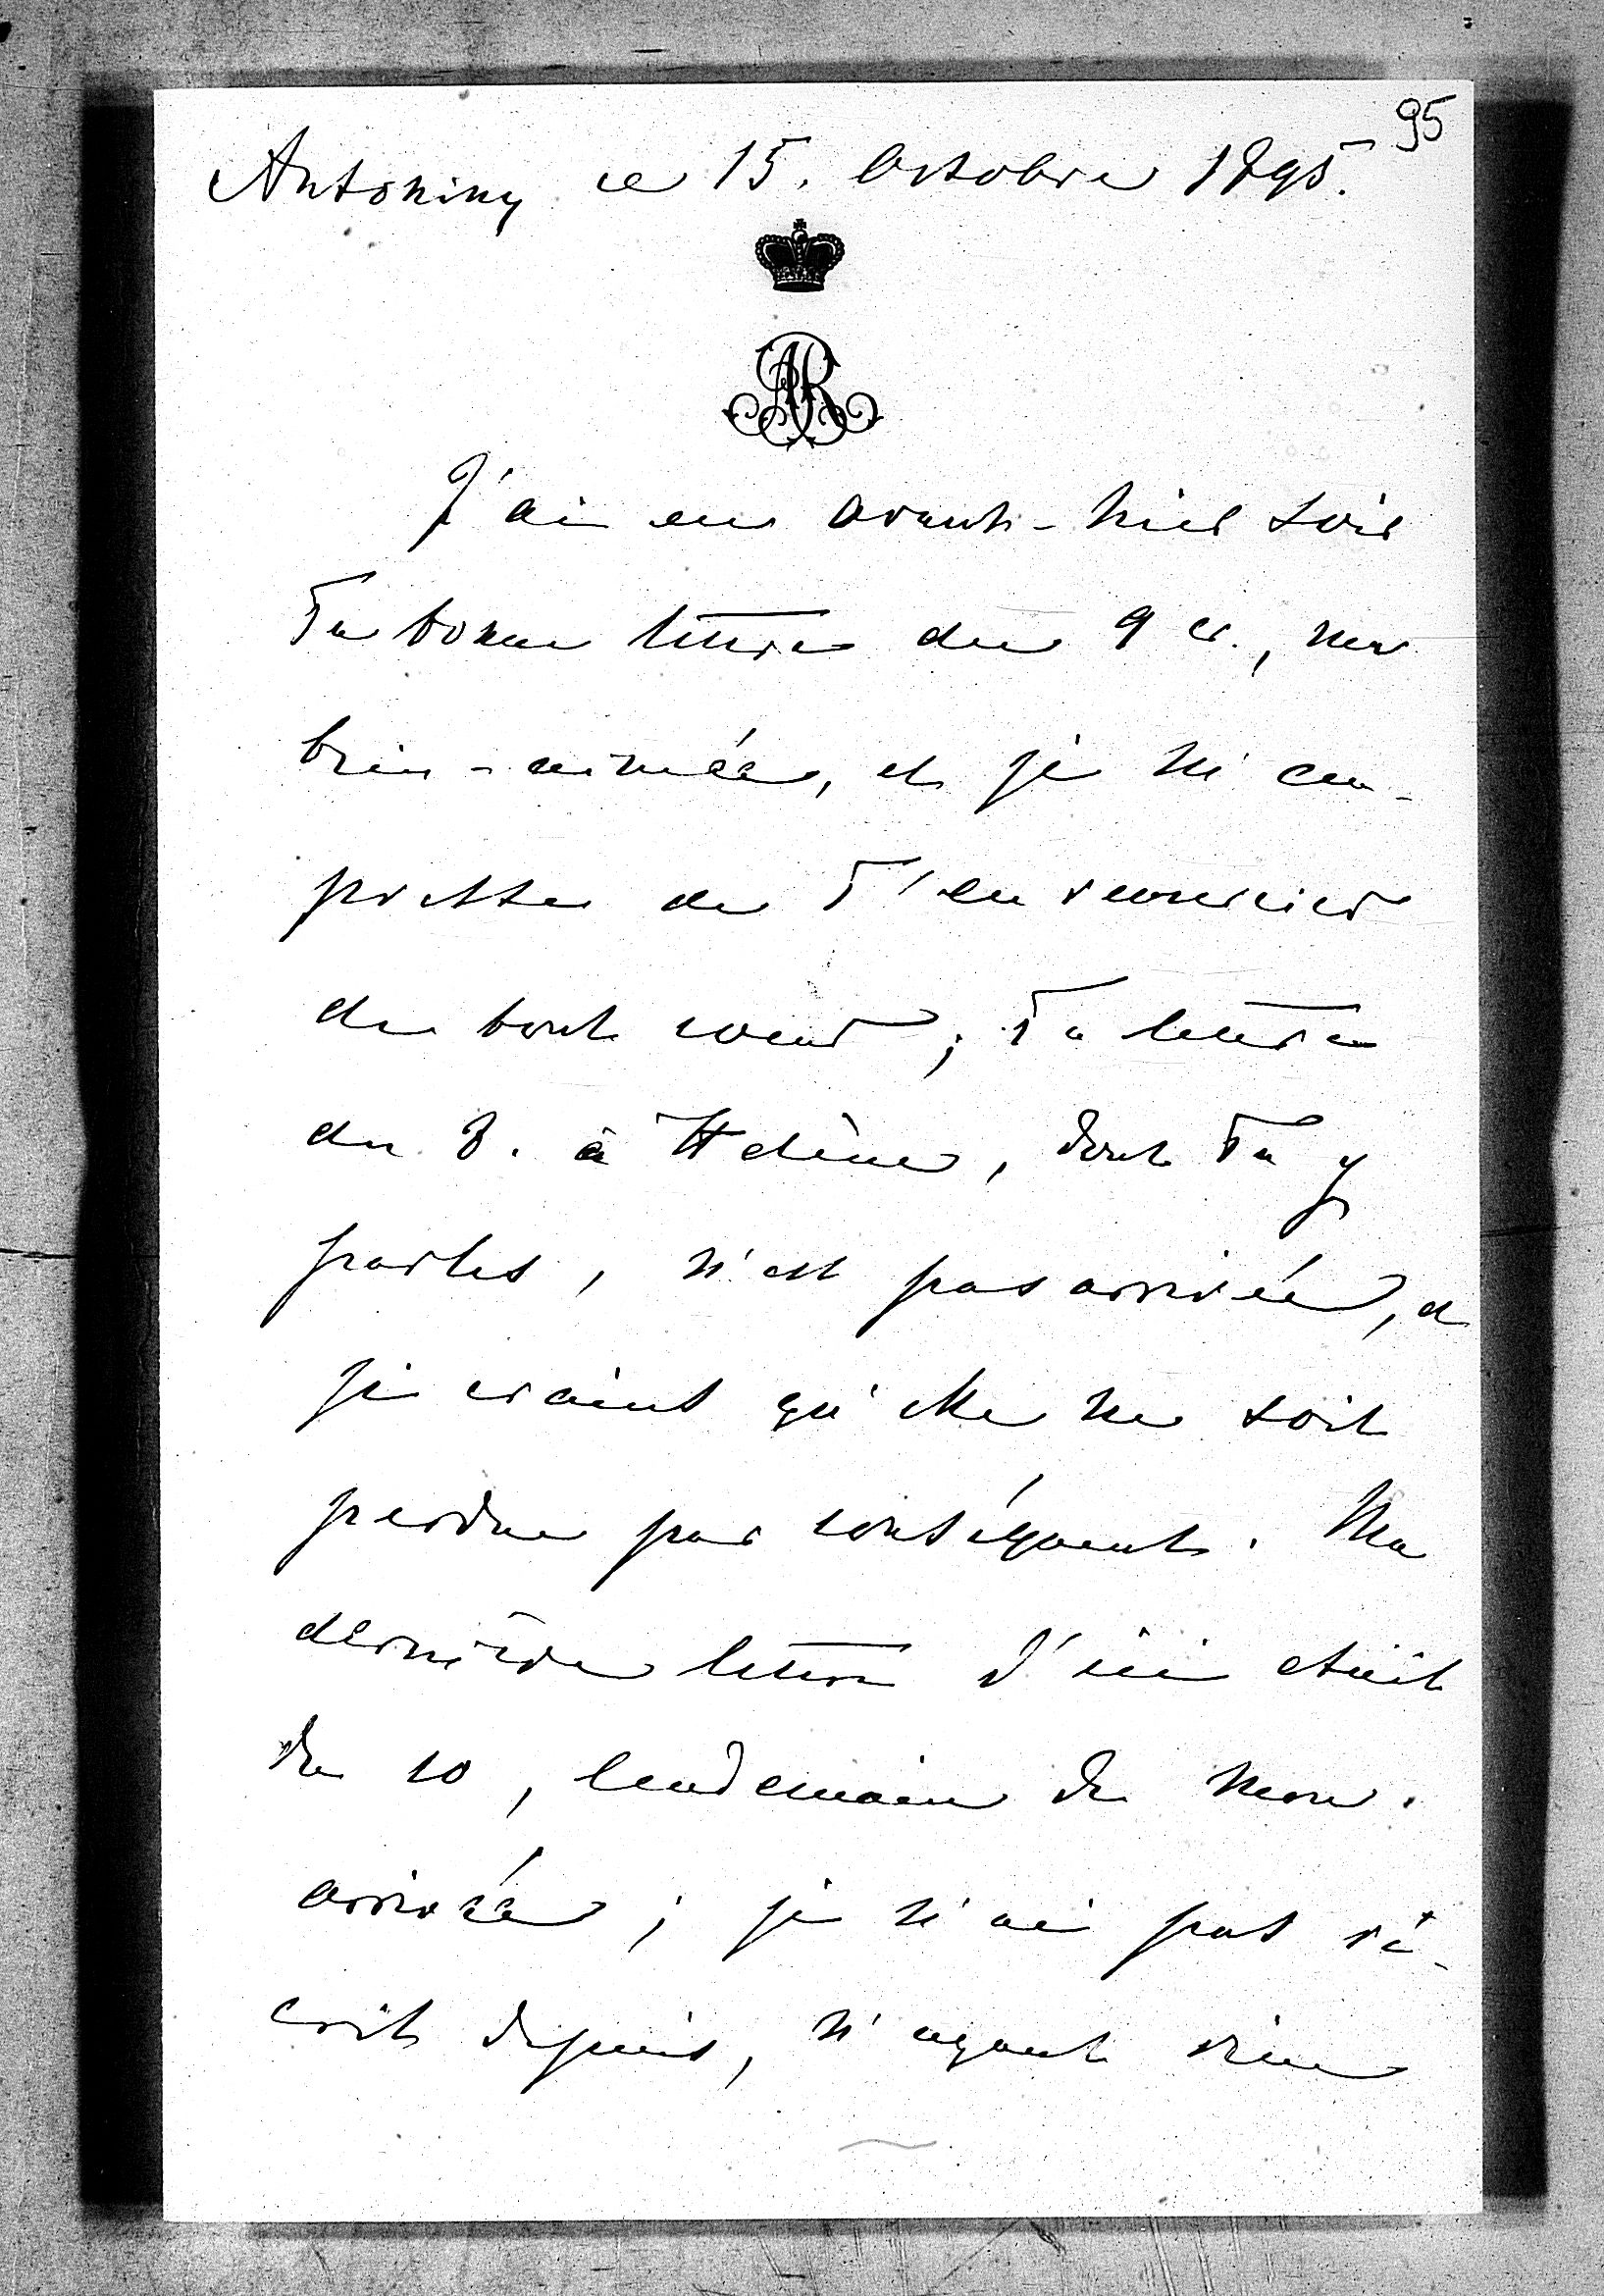 95
Antoniny ce 15. Octobre 1895.
AR
J'ai eu avant-hier soir
Ta bonne lettre du 9 cr., ma
bien-aimée, et je m'em-
presse de T'en remercier
de tout coeur; Ta lettre
du 3. à Hélène, dont Tu y
parles, n'est pas arrivée, et
je crains qu'elle ne soit
perdue par conséquent. Ma
dernière lettre d'ici était
du 10, lendemain de mon
arrivée; je n'ai pas ré-
crit depuis, n'ayant rien